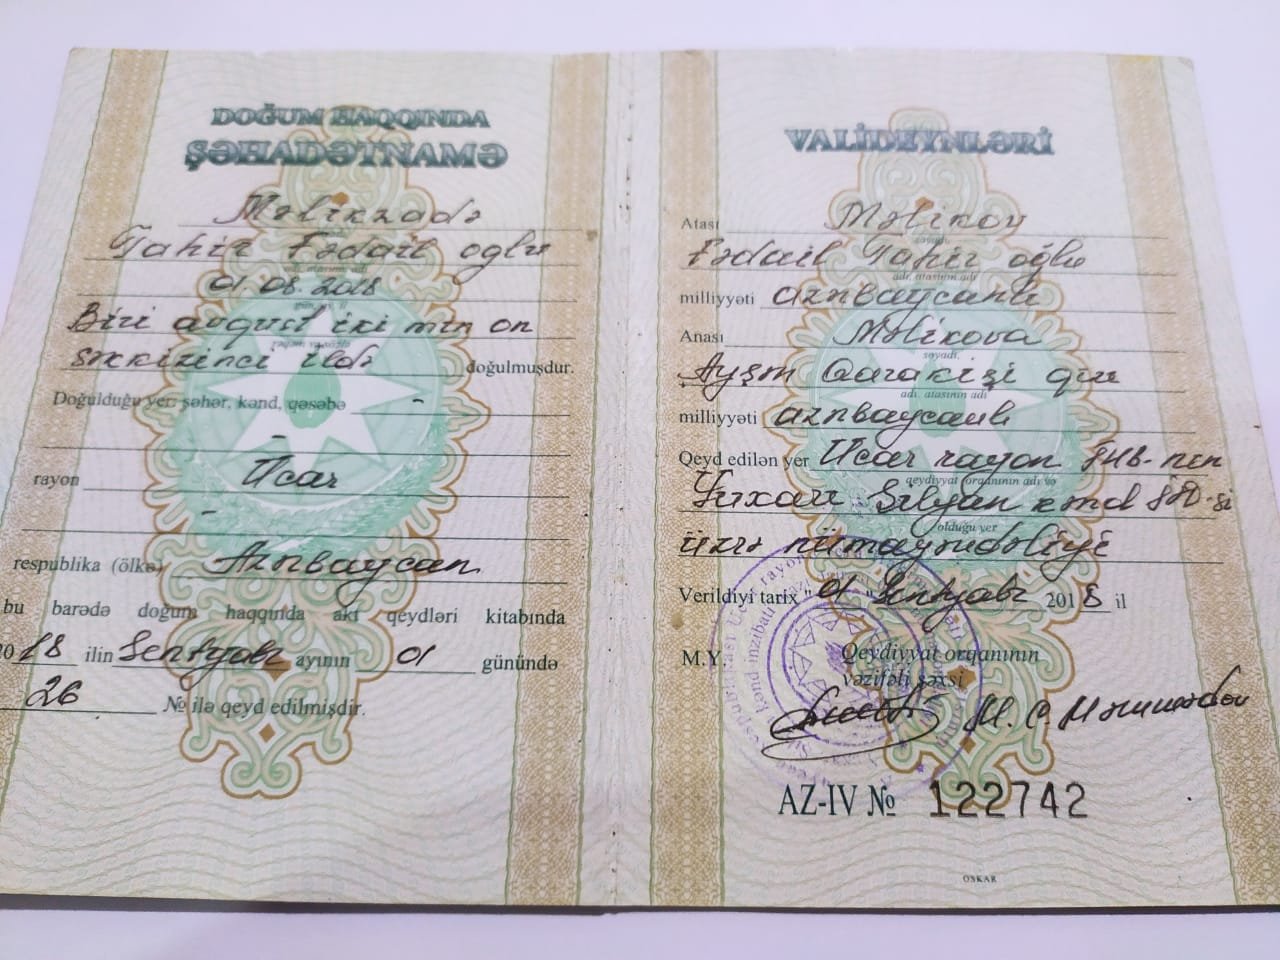 DOĞUM HAQQINDA
ŞƏHADƏTNAMƏ
Məlikzadə
Tahir Fədail oğlu
adı, atasının adı
01.08.2018
gün, ay, il
Biri avqust iki min on
rəqəm və sözlə
səkkizinci ildə doğulmuşdur.
Doğulduğu yer: şəhər, kənd, qəsəbə -
-
rayon Ucar
-
respublika (ölkə) Azərbaycan
bu barədə doğum haqqında akt qeydləri kitabında
2018 ilin Sentyabr ayının 01 günündə
26 № ilə qeyd edilmişdir.
VALİDEYNLƏRİ
Atası Məlikov
soyadı,
Fədail Tahir oğlu
adı, atasının adı
milliyyəti azərbaycanlı
Anası Məlikova
soyadı,
Ayşən Qarakişi qızı
adı, atasının adı
milliyyəti azərbaycanlı
Qeyd edilən yer Ucar rayon ŞHB-nin
qeydiyyat orqanının adı və
Yuxarı Şilyan kənd İƏD-si
olduğu yer
üzrə nümayəndəliyi
Verildiyi tarix "01" Sentyabr 2018 il
M.Y. Qeydiyyat orqanının
vəzifəli şəxsi
M. C. Məmmədov
AZ-IV № 122742
OSKAR